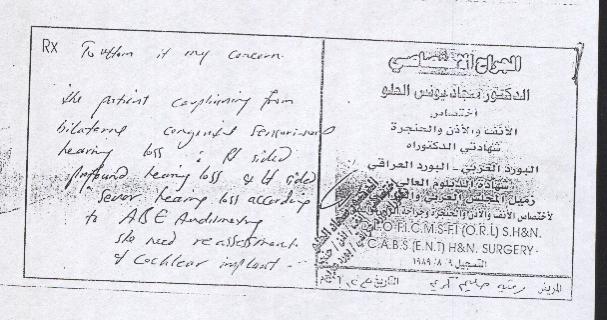 Rx To whom it my concern
the patient complaining from
bilateral congenital sensorineural
hearing loss : Rt sided
profound hearing loss & Lt sided
sever hearing loss according
to ABE Audiometry
she need reassessment
of Cochlear implant
الجراح الاختصاصي
الدكتور سجاد يونس الحلو
اختصاص
الأنف والأذن والحنجرة
شهادتي الدكتوراه
البورد العربي - البورد العراقي
شهادة الدبلوم العالي
زميل المجلس العربي
لاختصاص الأنف والأذن والحنجرة وجراحة
F.I.C.M.S-FI (O.R.L) S.H&N.
C.A.B.S (E.N.T) H&N. SURGERY-
التسجيل ٩ / ٨ / ١٩٨٩
المريض
التاريخ